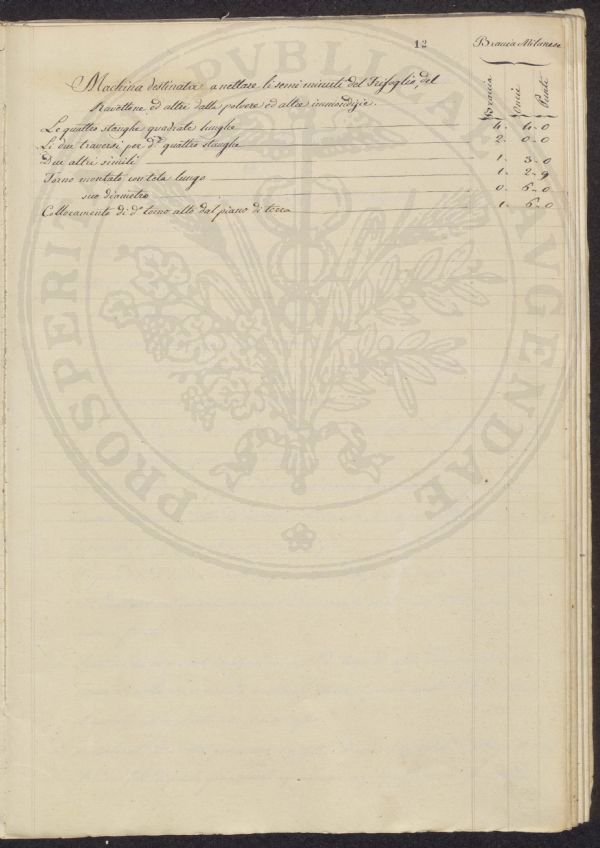 12
Bracia Milanese
Bracia Oncie Punti
Machina destinata a nettare li semi minuti del Trifoglio, del
Ravettone ed altri dalla polvere ed altre immondizie.
Le quattro stanghe quadrate lunghe 4. 4. 0
Li due traversi per d.e quattro stanghe 2. 0. 0
Due altri simili 1. 3. 0
Torno montato con tela lungo 1. 2. 9
suo diametro 0. 6. 0
Collocamento di d.o torno alto dal piano di terra 1. 6. 0
PROSPERITATI PVBLICAE AVGENDAE